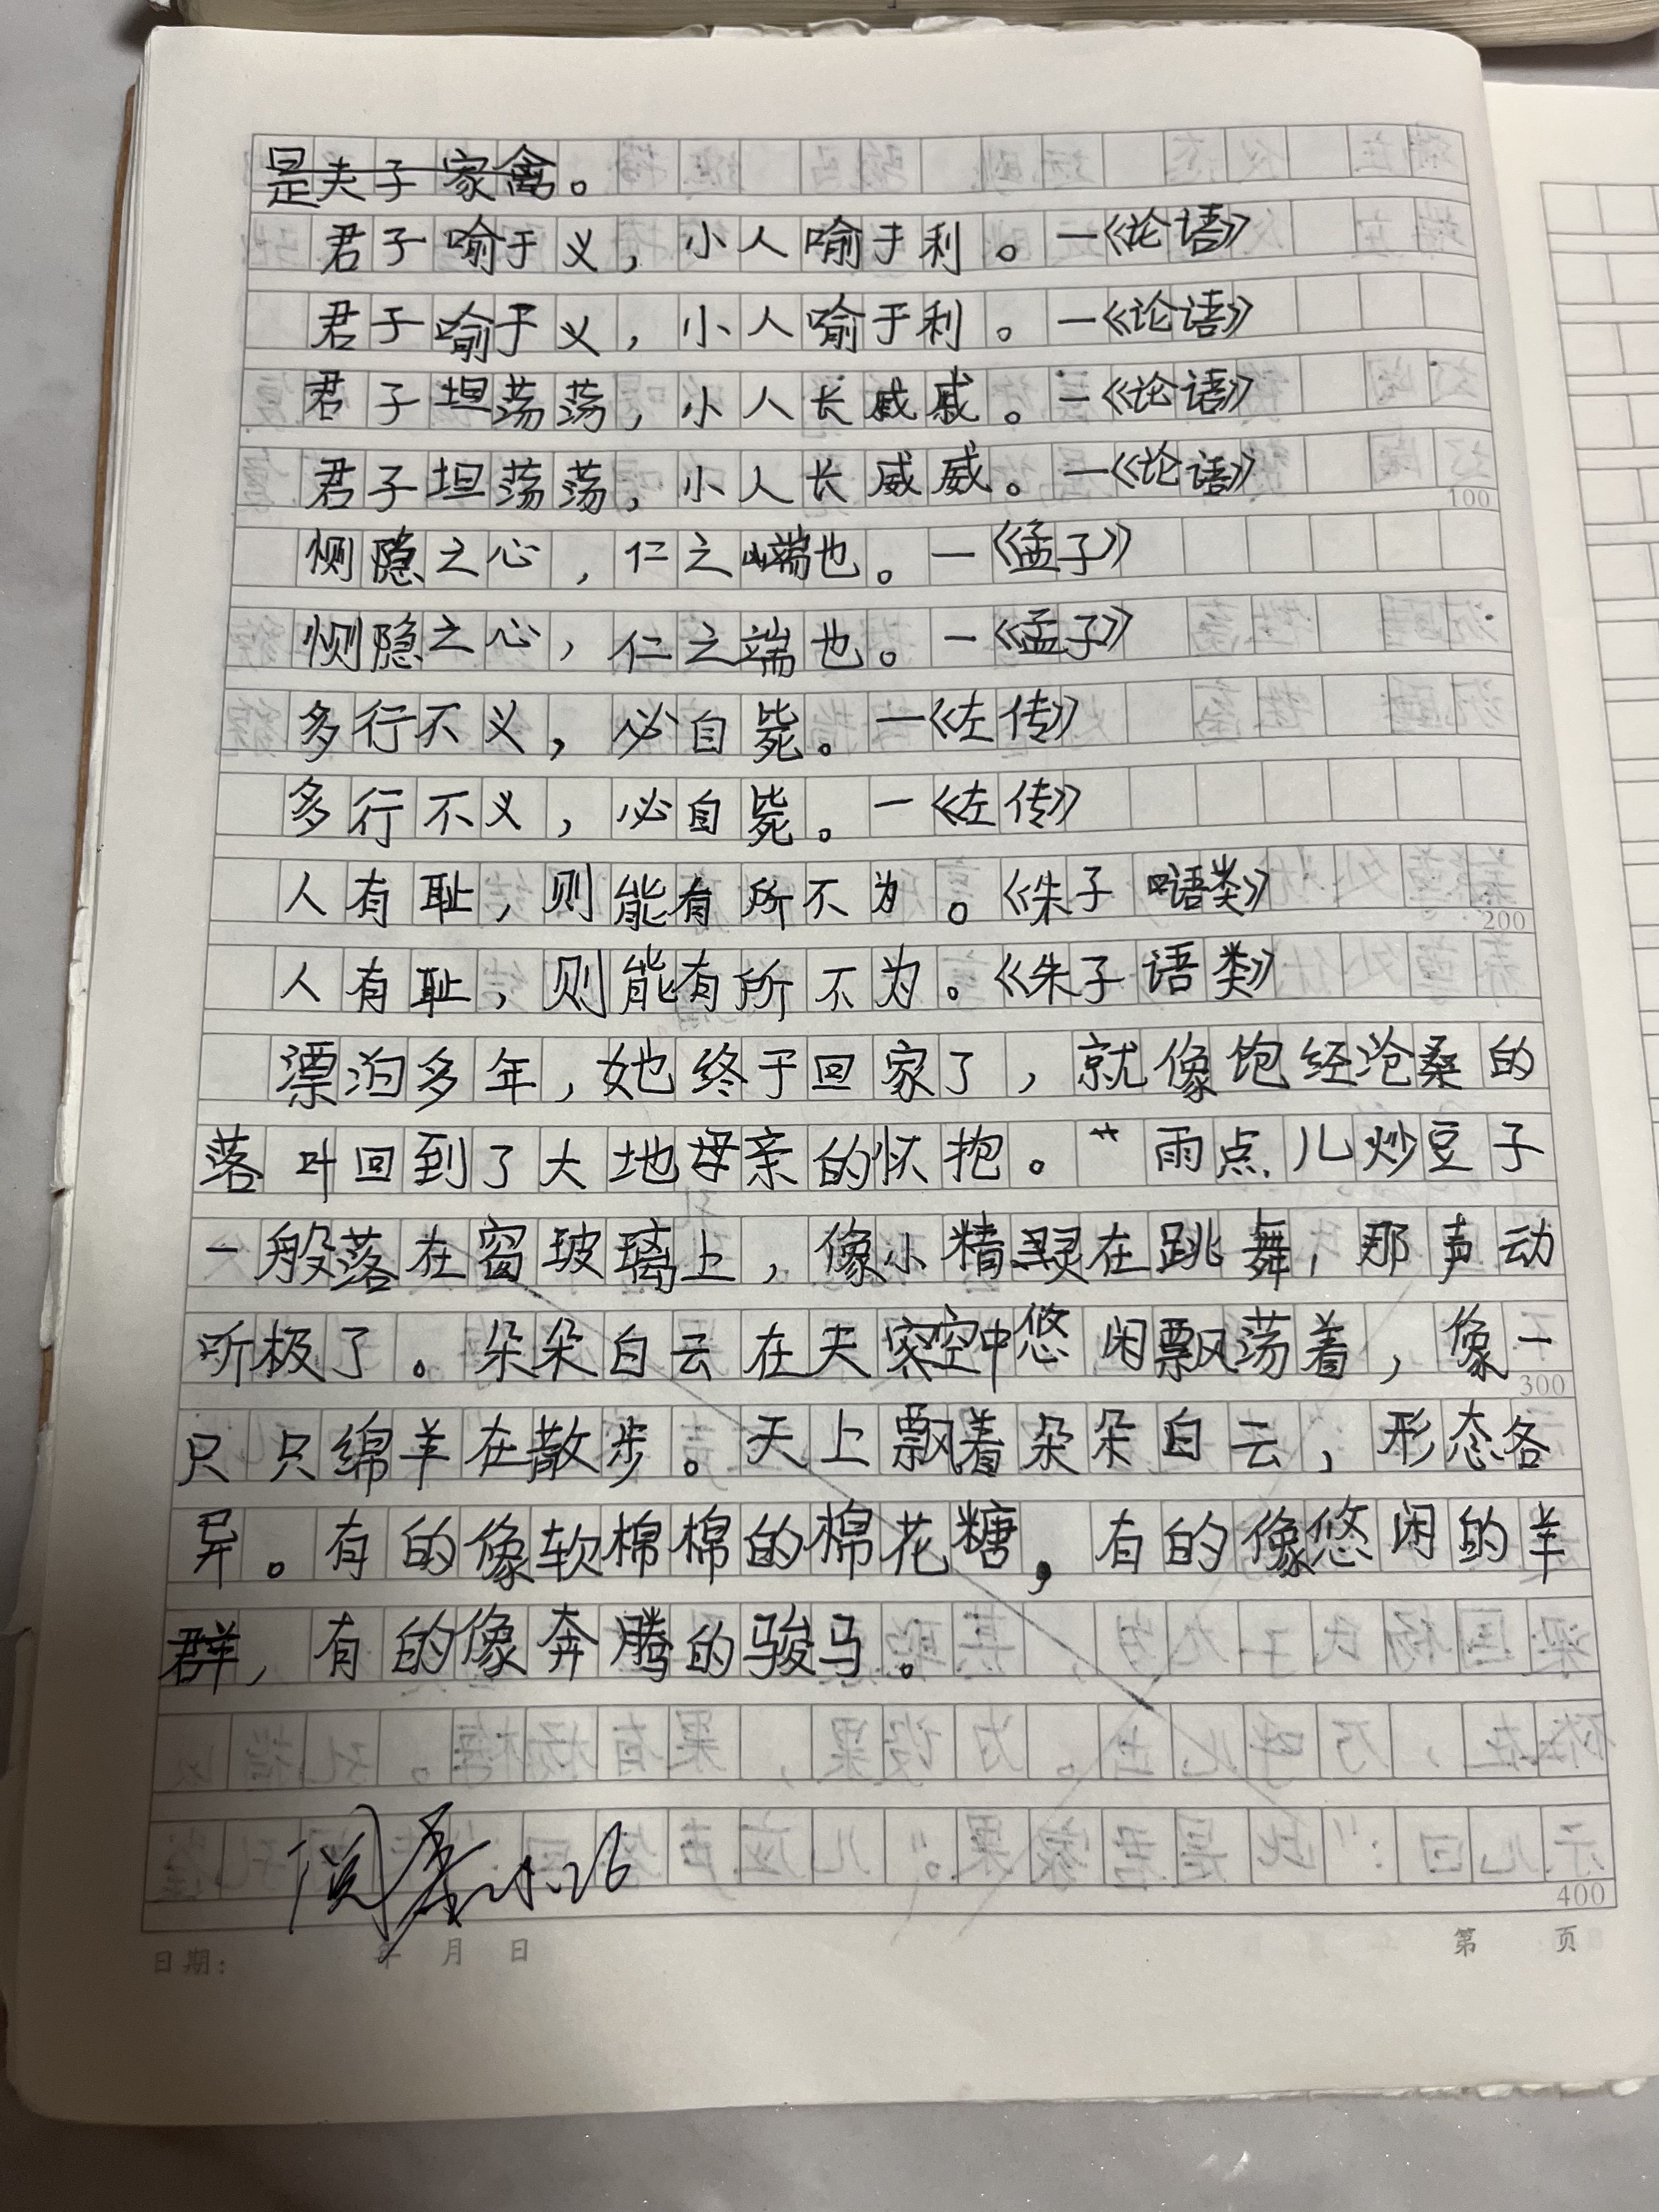 是夫子家禽。
君子喻于义，小人喻于利。—《论语》
君子喻于义，小人喻于利。—《论语》
君子坦荡荡，小人长戚戚。—《论语》
君子坦荡荡，小人长威威。—《论语》
恻隐之心，仁之端也。—《孟子》
恻隐之心，仁之端也。—《孟子》
多行不义，必自毙。—《左传》
多行不义，必自毙。—《左传》
100
人有耻，则能有所不为。《朱子语类》
200
人有耻，则能有所不为。《朱子语类》
漂泊多年，她终于回家了，就像饱经沧桑的
落叶回到了大地母亲的怀抱。雨点儿炒豆子
一般落在窗玻璃上，像小精灵在跳舞，那声动
听极了。朵朵白云在天空中悠闲飘荡着，像一
300
只只绵羊在散步。天上飘着朵朵白云，形态各
异。有的像软棉棉的棉花糖，有的像悠闲的羊
群，有的像奔腾的骏马。
400
日期： 年 月 日 第 页